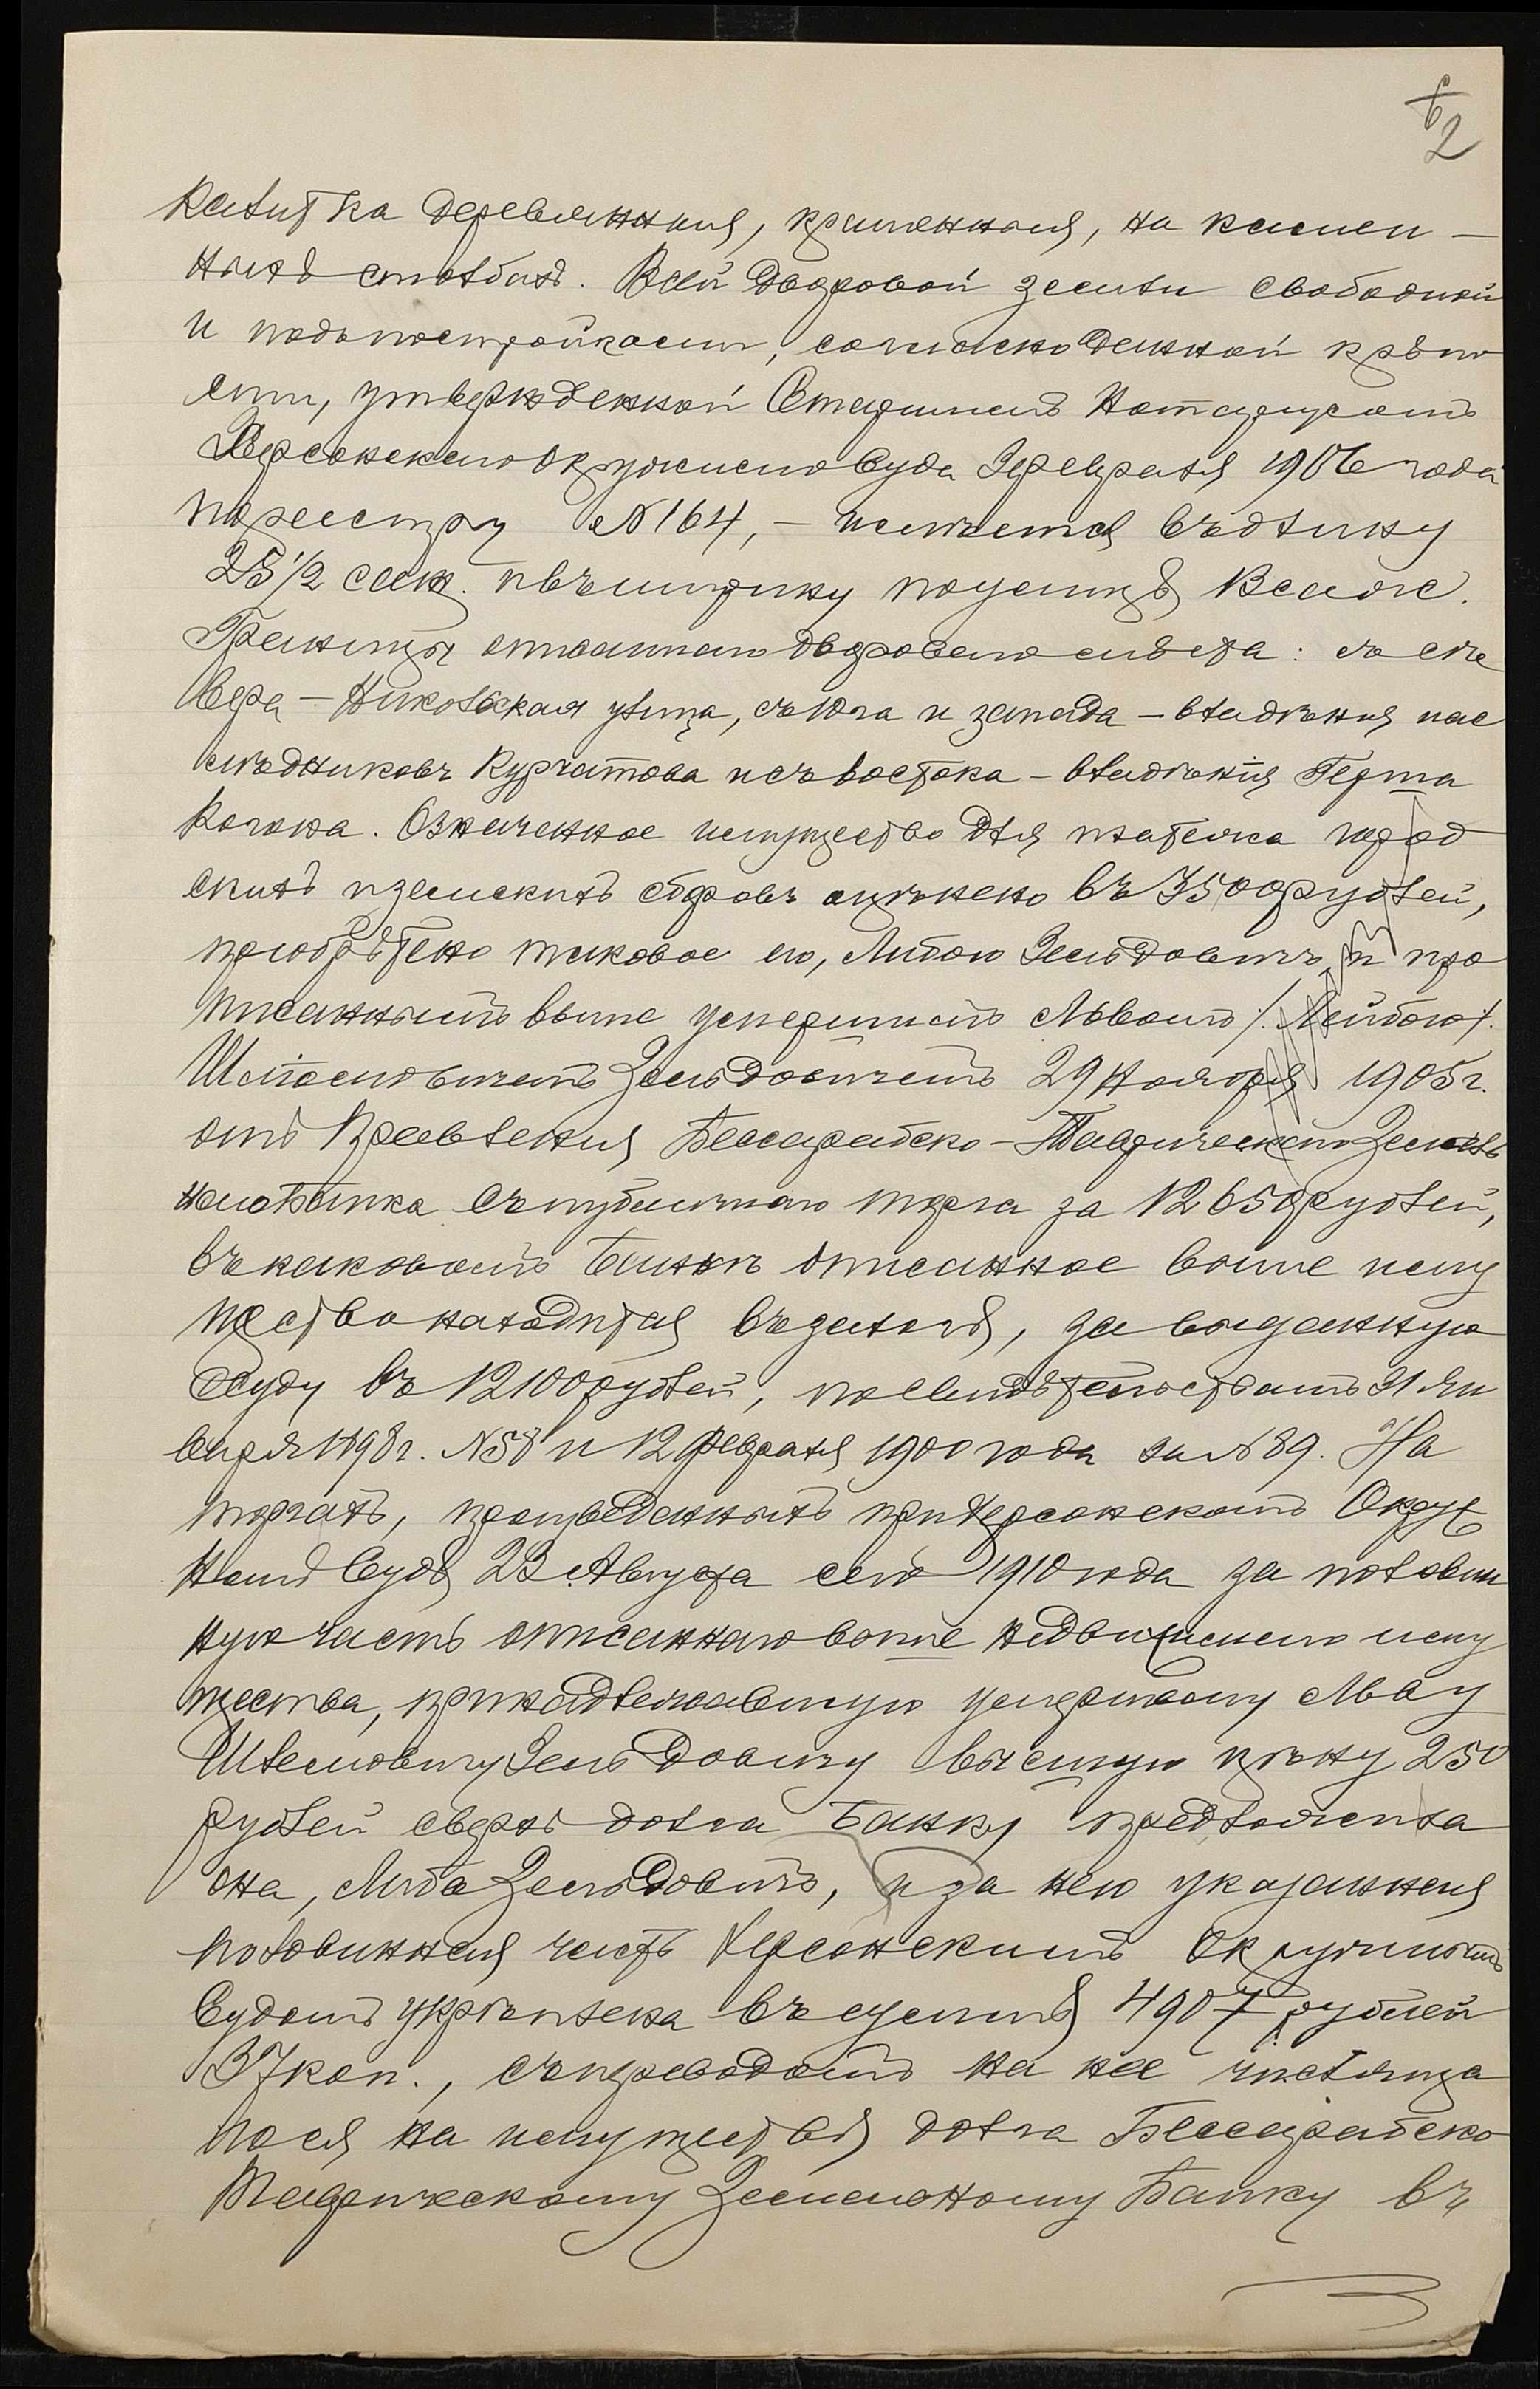 2
калитка деревянная, крашенная, на камен-
ныхъ столбахъ. Всей дворовой земли свободной
и подъ постройками, согласно данной крѣпо
сти, утвержденной Старшимъ Нотаріусомъ
Херсонскаго Окружнаго Суда Февраля 1906 года
по реестру №164, – имѣется въ длину
25 1/2 саж. и въ ширину по улицѣ
Границы описаннаго двороваго мѣста: съ сѣ
вера – Никольская улица, съ юга и запада – владѣнія нас
лѣдниковъ Курчатова и съ востока – владѣнія Герша
Когона. Означенное имущество для платежа город
скихъ и земскихъ сборовъ оцѣнено въ 3500 рублей,
пріобрѣтено таковое ею, Либою Зельдовичъ и про
писаннымъ выше умершимъ Львомъ /Лейбою/
Шлемовичемъ Зельдовичемъ 29 Ноября 1905 г.
отъ Правленія Бессарабско-Таврическаго Земель
наго Банка съ публичнаго торга за 12650 рублей,
въ каковомъ Банкѣ описанное выше иму
щество находится въ залогѣ, за выданную
ссуду въ 12100 рублей, по свидѣтельствамъ 31 Ян
варя 1898 г. №58 и 12 февраля 1900 года за №89. На
торгахъ, произведенныхъ при Херсонскомъ Окруж
номъ Судѣ 23 Августа сего 1910 года за половин
ную часть описаннаго выше недвижимаго иму
щества, принадлежавшую умершему Льву
Шлемовичу Зельдовичу высшую цѣну 250
рублей сверхъ долга Банку предложила
она, Либа Зельдовичъ, и за нею указанная
половинная часть Херсонскимъ Окружнымъ
Судомъ укрѣплена въ суммѣ 4907 рублей
37 коп., съ переводомъ на нее числяща
гося на имуществѣ долга Бессарабско
Таврическому Земельному Банку въ